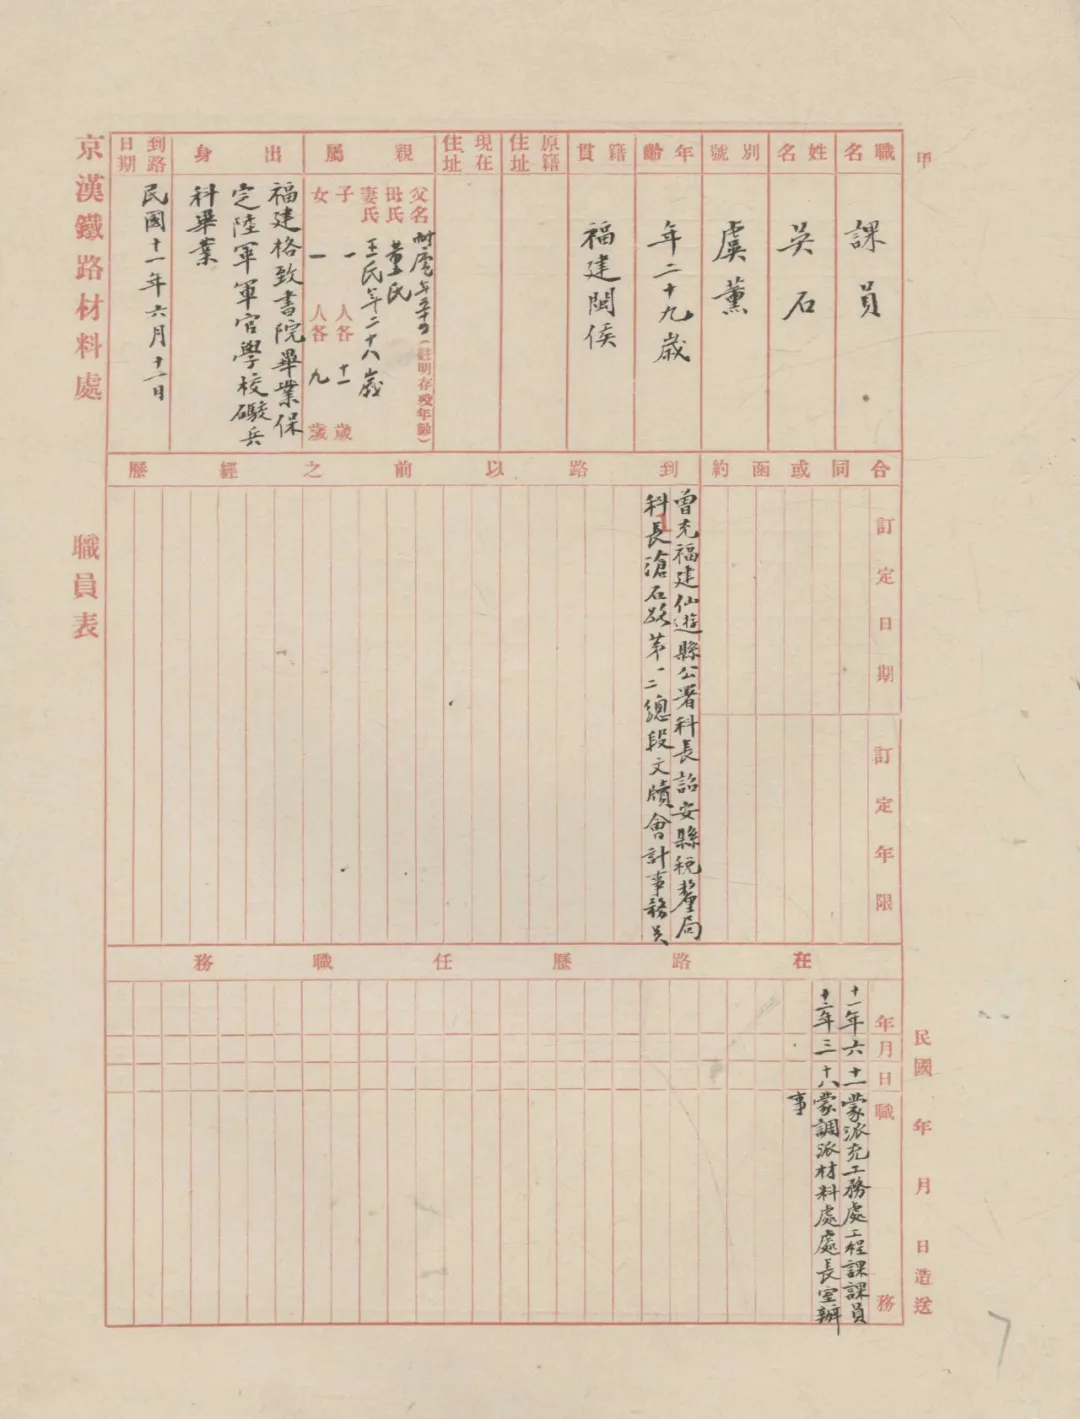 甲
職名
課員
姓名
吳石
別號
虞薰
年齡
年二十九歲
籍貫
福建閩侯
原籍住址
現在住址
親屬
父名 (註明存歿年齡)
母氏 董氏
妻氏 王氏年二十八歲
子 一 人各 十一 歲
女 一 人各 九 歲
出身
福建格致書院畢業保
定陸軍軍官學校礮兵
科畢業
到路日期
民國十一年六月十二日
合同或函約
訂定日期
訂定年限
到路以前之經歷
曾充福建仙遊縣公署科長詔安縣稅釐局
科長滄石路第一二總段文牘會計事務員
在路歷任職務
年月日 職務
十一年 六 十一 蒙派充工務處工程課課員
十三年 三 十八 蒙調派材料處處長室辦
事
民國 年 月 日造送
京漢鐵路材料處 職員表
7